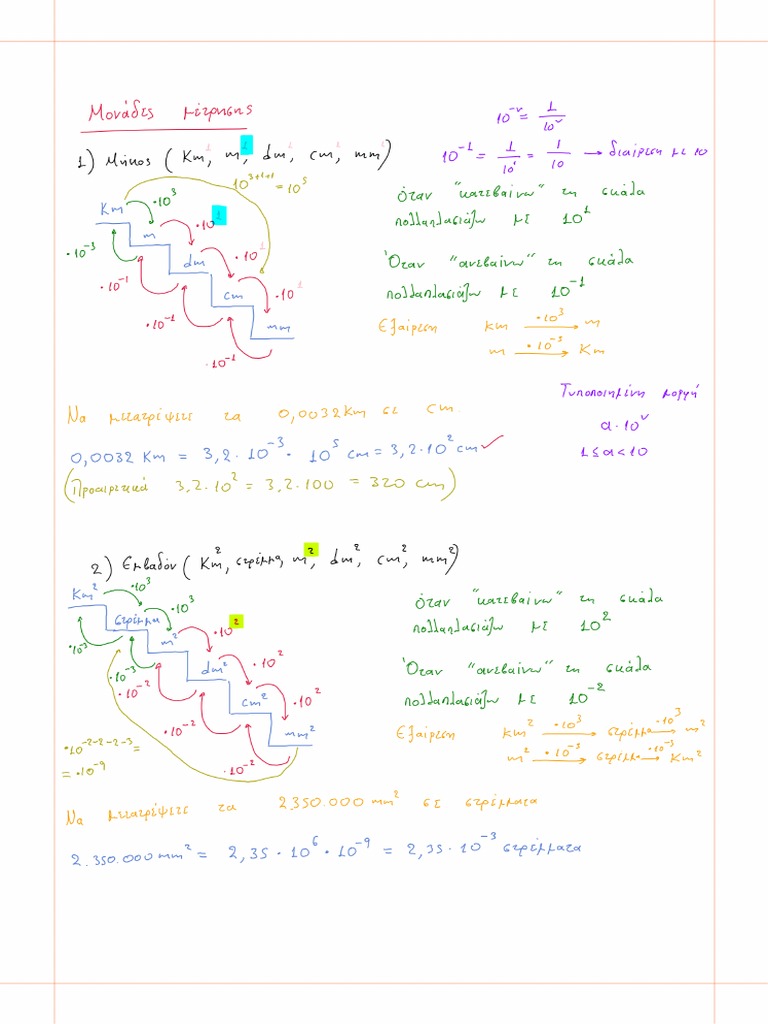 Μονάδες μέτρησης
10^-ν = 1/10^ν
10^-1 = 1/10^1 = 1/10 → διαίρεση με 10
1) Μήκος (Km^1, m^1, dm^1, cm^1, mm^1)
10^3+1+1 = 10^5
Km ·10^3
m ·10^1
dm ·10^1
cm ·10^1
mm
·10^-3
·10^-1
·10^-1
·10^-1
όταν "κατεβαίνω" τη σκάλα
πολλαπλασιάζω με 10^1
Όταν "ανεβαίνω" τη σκάλα
πολλαπλασιάζω με 10^-1
Εξαίρεση km ·10^3 → m
m ·10^-3 → Km
Τυποποιημένη μορφή
α·10^ν
1≤α<10
Να μετατρέψετε τα 0,0032Km σε cm.
0,0032 Km = 3,2·10^-3 · 10^5 cm = 3,2·10^2 cm ✓
(Προαιρετικά 3,2·10^2 = 3,2·100 = 320 cm)
2) Εμβαδόν (Km^2, στρέμμα, m^2, dm^2, cm^2, mm^2)
Km^2 ·10^3
στρέμμα ·10^3
m^2 ·10^2
dm^2 ·10^2
cm^2 ·10^2
mm^2
·10^-3
·10^-3
·10^-2
·10^-2
·10^-2
·10^-2-2-2-3 =
= ·10^-9
όταν "κατεβαίνω" τη σκάλα
πολλαπλασιάζω με 10^2
Όταν "ανεβαίνω" τη σκάλα
πολλαπλασιάζω με 10^-2
Εξαίρεση km^2 ·10^3 → στρέμμα ·10^3 → m^2
m^2 ·10^-3 → στρέμμα ·10^-3 → Km^2
Να μετατρέψετε τα 2.350.000 mm^2 σε στρέμματα
2.350.000 mm^2 = 2,35 · 10^6 · 10^-9 = 2,35 · 10^-3 στρέμματα